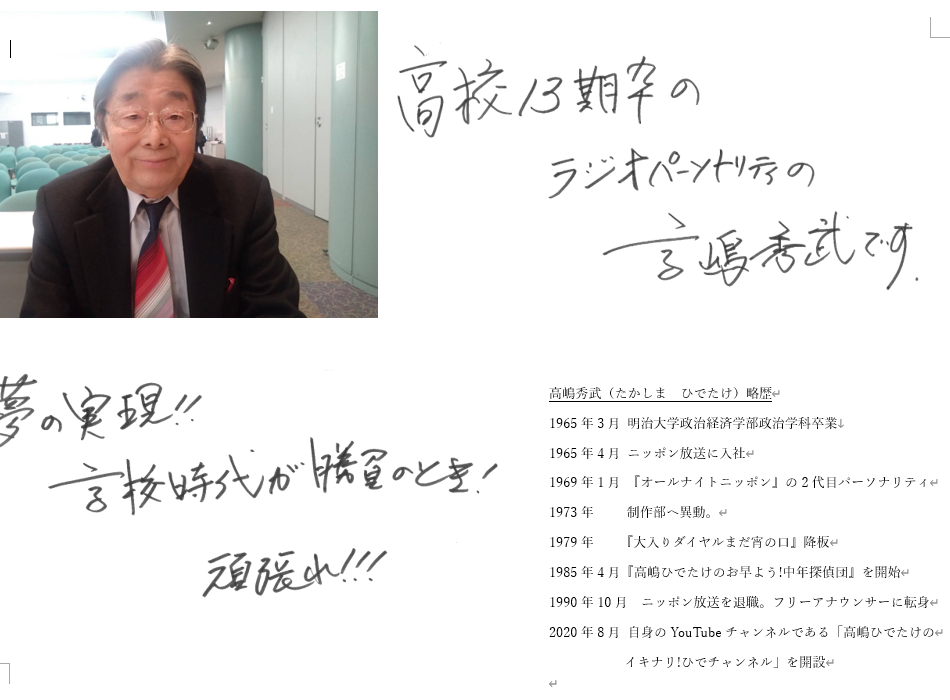 高校13期卒の
ラジオパーソナリティの
高嶋秀武です.
夢の実現!!
高校時代が勝負のとき!
頑張れ!!!
高嶋秀武（たかしま　ひでたけ）略歴↵
1965年3月 明治大学政治経済学部政治学科卒業↓
1965年4月 ニッポン放送に入社↵
1969年1月 『オールナイトニッポン』の２代目パーソナリティ↵
1973年　　制作部へ異動。↵
1979年　　『大入りダイヤルまだ宵の口』降板↵
1985年4月『高嶋ひでたけのお早よう!中年探偵団』を開始↵
1990年10月　ニッポン放送を退職。フリーアナウンサーに転身↵
2020年8月 自身のYouTubeチャンネルである「高嶋ひでたけの↵
イキナリ!ひでチャンネル」を開設↵
↵